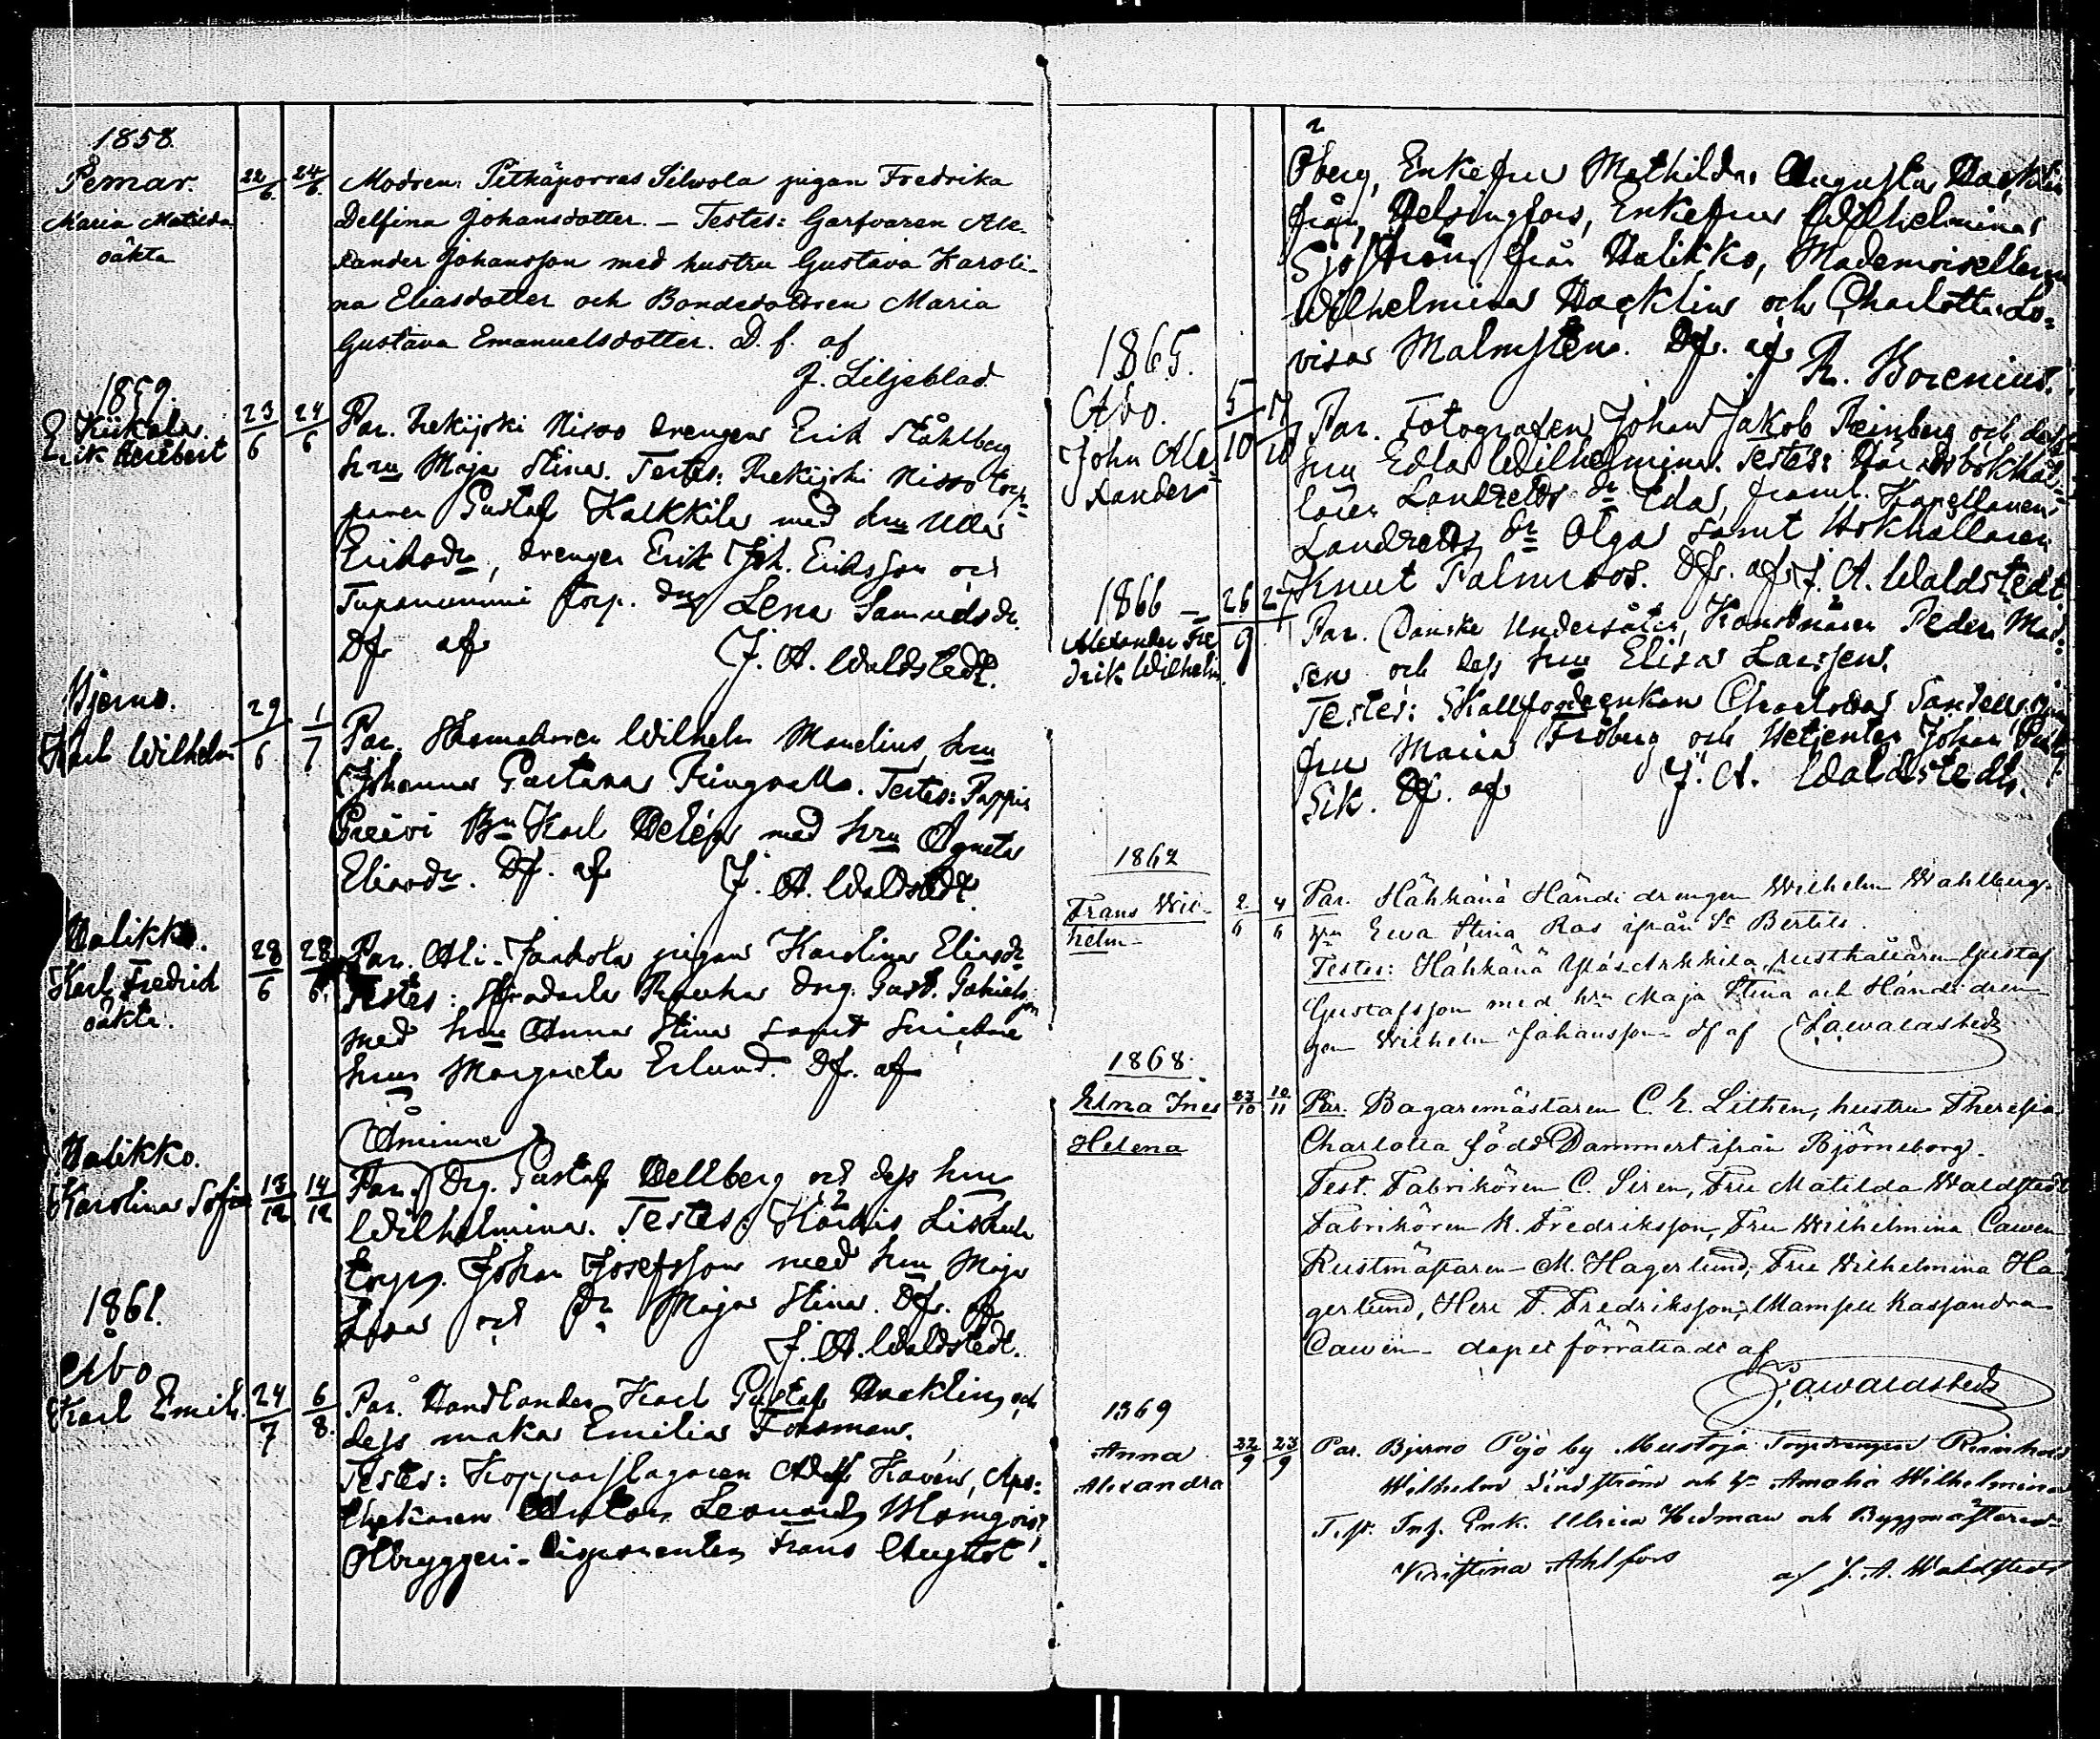 1858.
Pemar. 22/6 24/6 Modren: Pitkäporras Silvola pigan Fredrika
Maria Matilda Delfina Johansdotter. — Testes: Garfvaren Ale-
oäkta xander Johansson med hustru Gustava Karoli-
na Eliasdotter och Bondedottren Maria
Gustava Emanuelsdotter. D. f. af
J. Liljeblad
1859.
Kiikala. 23/6 24/6 Par. Rekijoki Nisso drengen Erik Ståhlberg
Erik Heribert hru Maja Stina. Testes: Rekijoki Nisso torp-
paren Gustaf Kalkkila med hru Ulla
Eriksdr, drengen Erik Joh. Eriksson och
torp. Lena Samuelsdr.
Df af J. A. Waldstedt.
Bjerno. 29/6 1/7
Karl Wilhelm Par. Wilhelm Mandelius, hru
Johanna Gustava Ringvall. Testes: Pappis
Karl med hru Agneta
Eliasdr. Df. af J. A. Waldstedt.
Halikko. 28/6 28/6 Par. Ali-Jaakola pigan Karolina Eliasdr
Karl Fredrik Testes: drg. Gust.
oäkta. med hru Anna Stina samt
hru Margareta Erlund. Df. af
Åminne
Halikko.
Karolina Sofia 13/12 14/12 Par. Drg. Gustaf Hellberg och dess hru
Wilhelmina. Testes:
Johan Josefsson med hru Maja
Lisa och Dr Maja Stina. Df. af
J. A. Waldstedt.
1861.
Åbo
Karl Emil. 24/7 6/8 Par. Handlanden Karl Gustaf Hacklin och
dess maka Emilia Forsman.
Testes: Kopparslagaren Adolf Kavén, Apo-
thekaren Anton Leonard Blomqvist
Ölbryggeri-disponenten Frans August
Öberg, Enkefru Mathilda Augusta Hacklin
från Helsingfors, Enkefru Wilhelmina
Sjöström från Halikko, Mademoisellerna
Wilhelmina Hacklin och Charlotta Lo-
visa Malmsten. Df. af
R. Borenius.
1865.
Åbo. 5/10 17/10 Par. Fotografen Johan Jakob Reinberg och dess
John Ale- hru Edla Wilhelmina. Testes:
xander Landzetts dr Eda, framl. Kapellanen
Landzetts dr Olga samt Bokhållaren
Knut Palmroos. Df. af J. A. Waldstedt.
1866 26 27/9 Par. Danske Undersåten, Konstnären Peder Mad-
Alexander Fre- sen och dess hru Elisa Larssen.
drik Wilhelm. Testes: Charlotta Sandell,
fru Maria Fröberg och Johan
Df. af J. A. Waldstedt.
1867
Frans Wil- 2/6 4/6 Par. Hähkänä Händi drengen Wilhelm Wahlberg.
helm- hru Ewa Stina Ros ifrån St Bertils.
Testes: Hähkänä Yläs Arkkila rusthållaren Gustaf
Gustafsson med hru Maja Stina och Händi dren-
gen Wilhelm Johansson df af J. A. Waldstedt
1868.
Elna Ines 23/10 10/11 Par. Bagaremästaren C. E. Lithen, hustru Theresia
Helena Charlotta född Dammert ifrån Björneborg.
Test. Fabrikören C. Siren, Fru Matilda Waldstedt
Fabrikören K. Fredriksson, Fru Wilhelmina Cawen
Rustmästaren M. Hagerlund, Fru Wilhelmina Ha-
gerlund, Herr F. Fredriksson, Mamsell Kassandra
Cawen dopet förrättadt af
J. A. Waldstedt
1869
Anna 22/9 23/9 Par. Bjerno Pöjo by Mustoja Torpdrengen Reinhold
Alexandra Wilhelm Lindström och hr Amalia Wilhelmina
Test. Enk. Ulrica Hedman och Byggmästaren
Kristina Ahlfors af J. A. Waldstedt